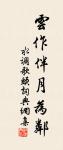 雲作伴月為鄰
水調歌頭詞典網集